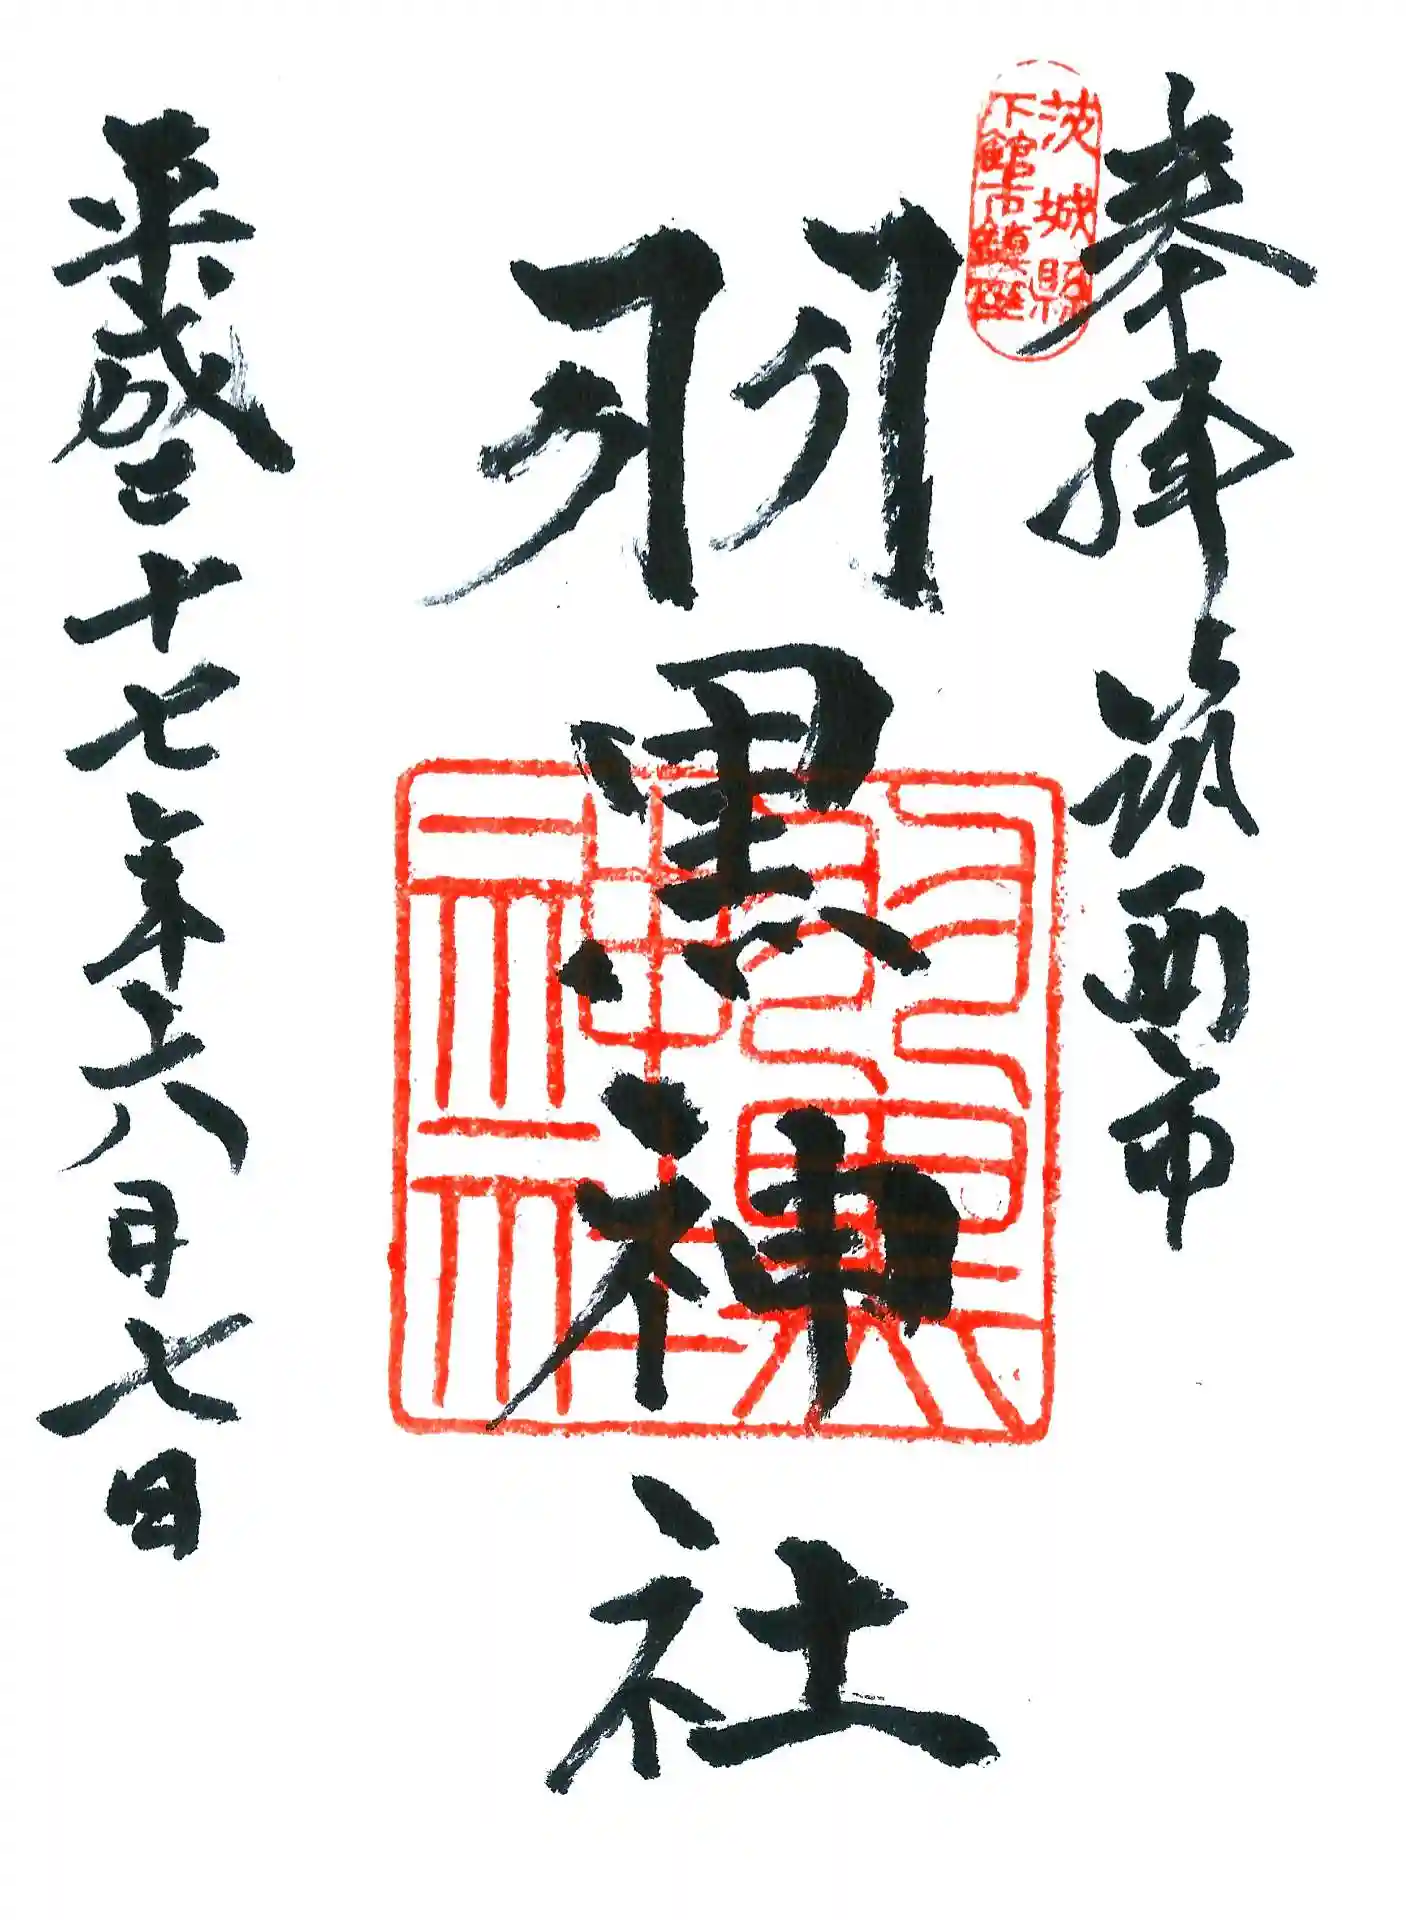 奉拝 筑西市
茨城縣
下館市鎮座
羽黒神社
羽黒
神社
平成二十七年六月七日